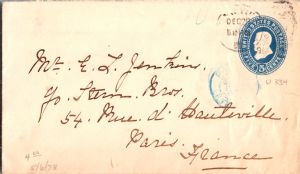 DEC
UNITED STATES POSTAGE
FIVE CENTS
U 384
Mr. E. L. Jenkin.
c/o Stern Bros.
54. Rue d'Hauteville
Paris
France
5/6/78